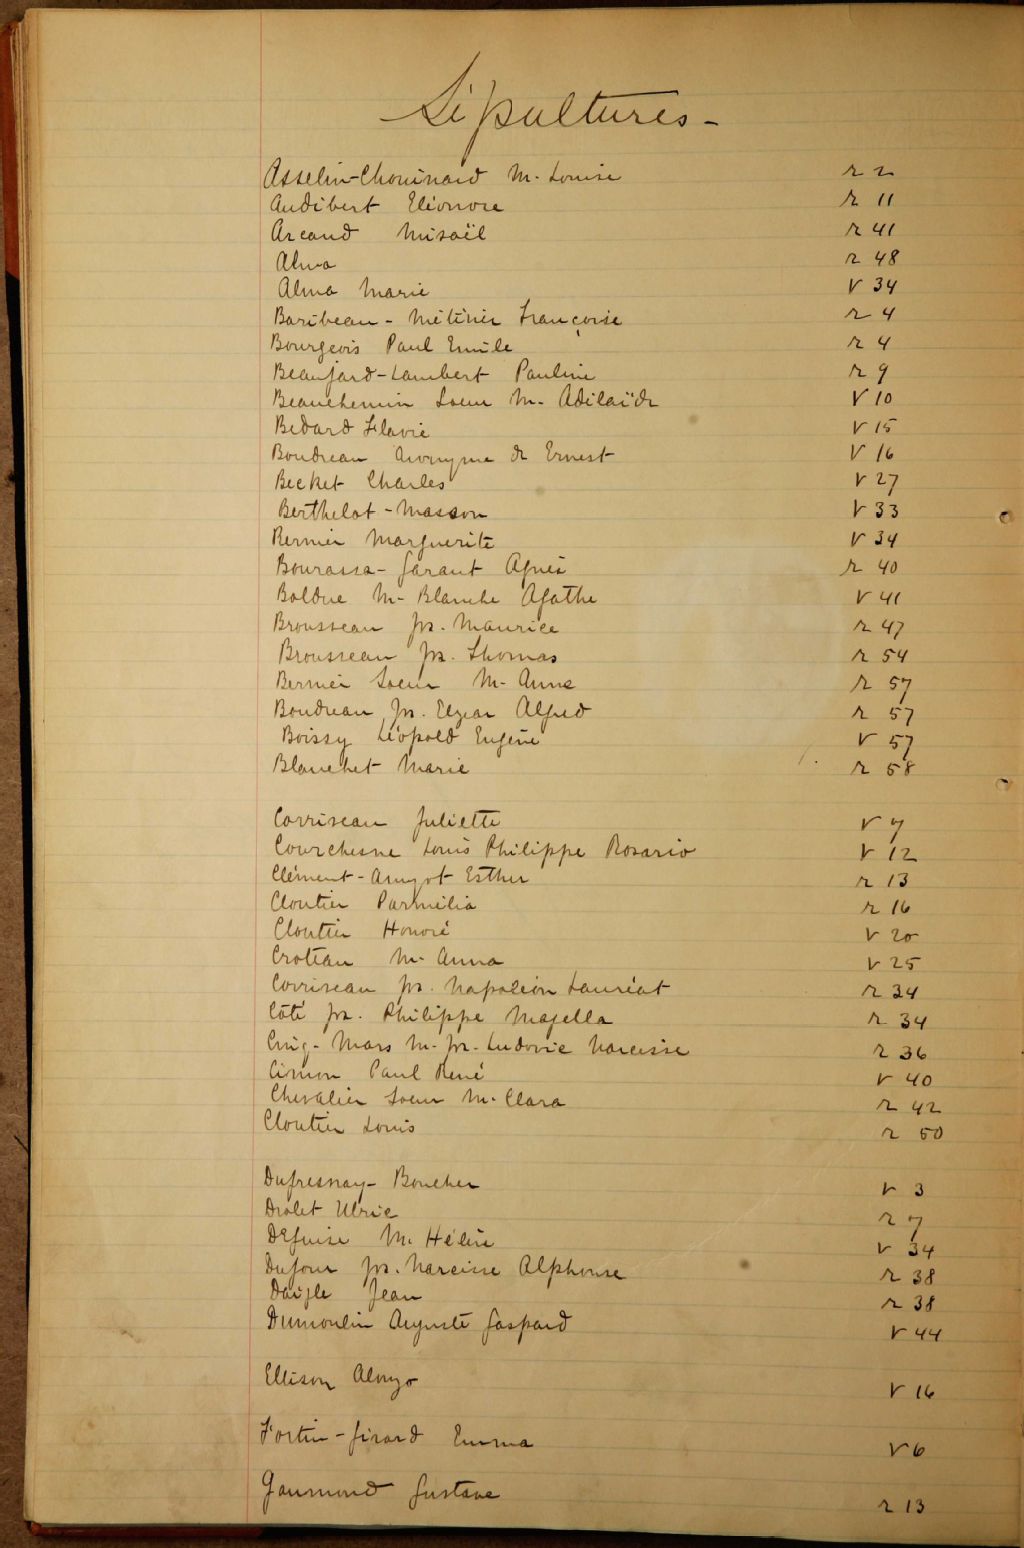 Sépultures -
Asselin-Chouinard M. Louise r 2
Audibert Eléonore r 11
Arcand Misaël r 41
Alma r 48
Alma Marie v 34
Baribeau - Métivier Françoise r 4
Bourgeois Paul Emile r 4
Beaujard-Lambert Pauline r 9
Beauchemin Soeur M. Adélaïde v 10
Bedard Flavie v 15
Boudreau Anonyme de Ernest v 16
Becket Charles v 27
Berthelot - Masson v 33
Bernier Marguerite v 34
Bourassa - Garant Agnès r 40
Bolduc M. Blanche Agathe v 41
Brousseau Jos. Maurice r 47
Brousseau Jos. Thomas r 54
Bernier Soeur M. Anne r 57
Boudreau Jos. Elzear Alfred r 57
Boissy Léopold Eugène v 57
Blanchet Marie r 58
Corriveau Juliette v 7
Courchesne Louis Philippe Rosario v 12
Clément - Amyot Esther r 13
Cloutier Parmélia r 16
Cloutier Honoré v 20
Croteau M. Anna v 25
Corriveau Jos. Napoléon Lauréat r 34
Côté Jos. Philippe Majella r 34
M. Jos. Ludovic Narcisse r 36
Cimon Paul René v 40
Chevalier Soeur M. Clara r 42
Cloutier Louis r 50
Dufresnay - Boucher v 3
Drolet Ulric r 7
Défuise M. Hélène v 34
Dufour Jos. Narcisse Alphonse r 38
Daigle Jean r 38
Dumoulin Auguste Gaspard v 44
Ellison Alonzo v 16
Fortin - Girard Emma v 6
Gaumond Gustave r 13